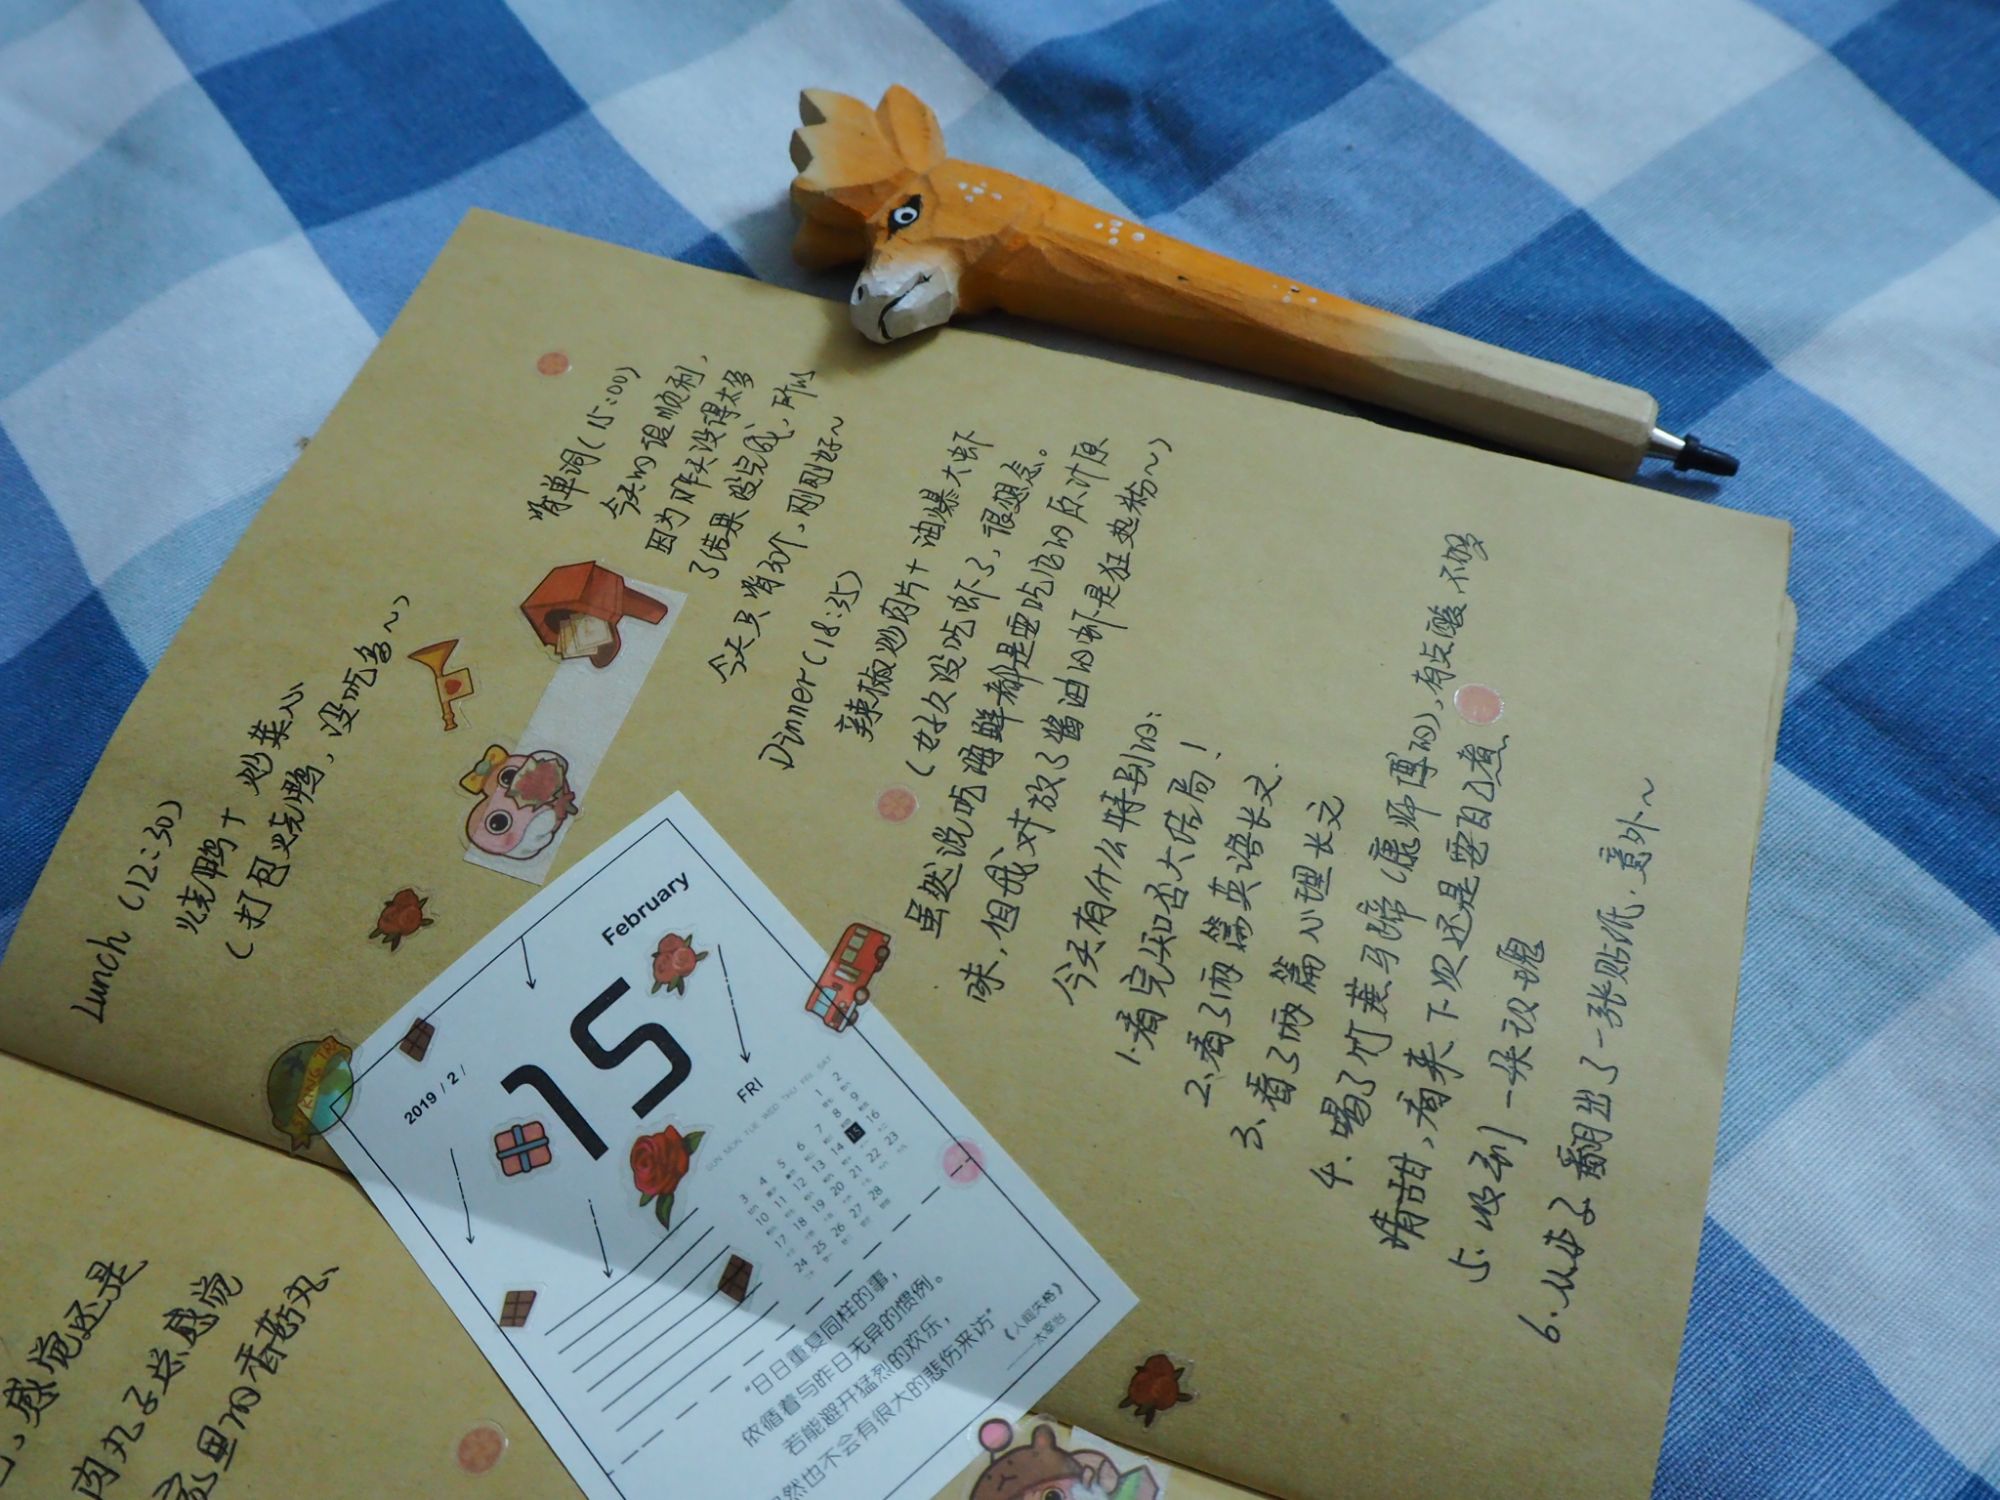 Lunch (12:30)
烧鸭+炒菜心
(打包烧鸭,没吃多~)
背单词(15:00)
今天的很顺利,
因为昨天没得太多
了结果没完成,所以
今天只背30个,刚刚好~
Dinner(18:35)
辣椒炒肉片+油爆大虾
(好久没吃虾了,很想念。
虽然说吃海鲜都是要吃它的原汁原
味,但我对放了酱油的虾是狂热粉~)
今天有什么特别的:
1.看完知否大结局!
2.看了两篇英语长文.
3.看了两篇心理长文
4.喝了竹蔗马蹄(康师傅的),有点酸不够
清甜,看来下次还是要自己煮
5.收到一朵玫瑰
6.从房子翻出了一张贴纸.意外~
感觉还是
肉丸子总感觉
家里的香菇丸、
2019 / 2 /
15
February
FRI
SUN MON TUE WED THU FRI SAT
1 2
3 4 5 6 7 8 9
10 11 12 13 14 15 16
17 18 19 20 21 22 23
24 25 26 27 28
“日日重复同样的事,
依循着与昨日无异的惯例。
若能避开猛烈的欢乐,
然也不会有很大的悲伤来访”
《人间失格》
——太宰治